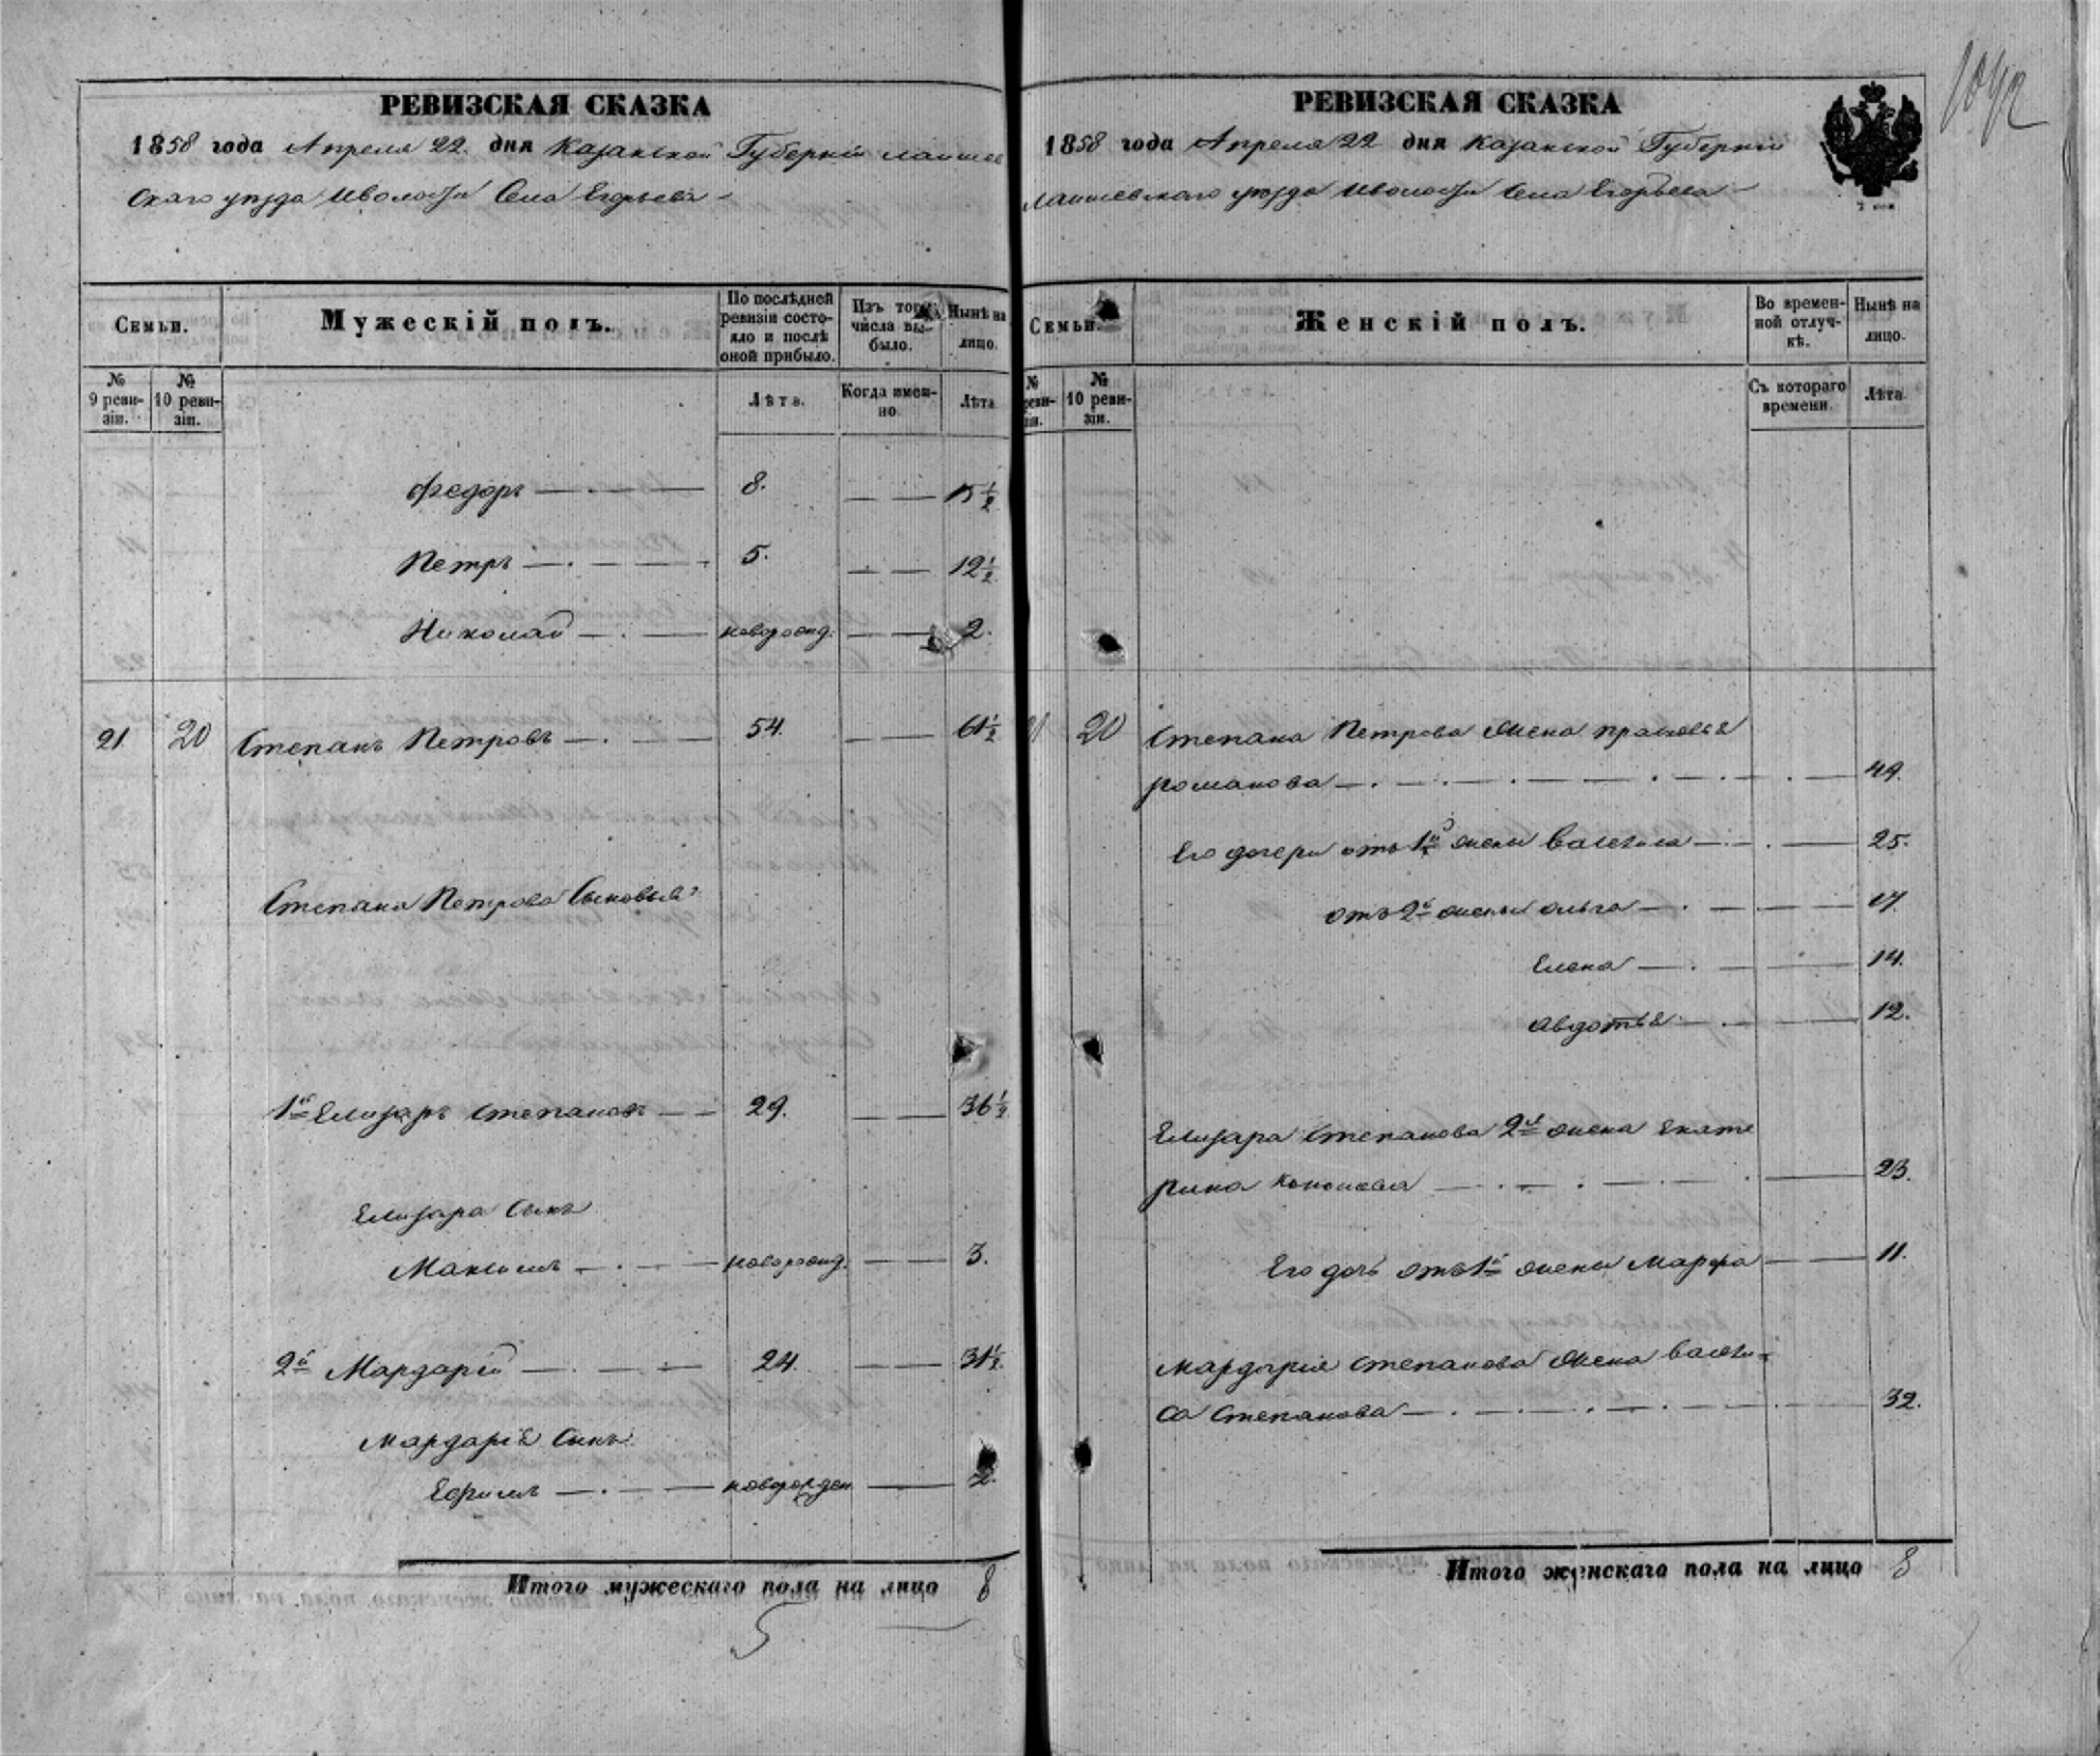 1042
РЕВИЗСКАЯ СКАЗКА
1858 года Апреля 22 дня Казанской Губерніи Лаишев
скаго уѣзда Иволости Села Егорьева
Семьи.
Мужескій полъ.
По послѣдней ревизіи состояло и послѣ оной прибыло.
Изъ того числа выбыло.
Нынѣ на лицо.
№ 9 ревизіи.
№ 10 ревизіи.
Лѣта.
Когда именно
Лѣта
Федоръ 8. 15 1/2
Петръ 5. 12 1/2
Николай новорожд. 2.
21 20 Степанъ Петровъ 54. 61 1/2
Степана Петрова Сыновья
1й Елизаръ Степановъ 29. 36 1/2
Елизара Сынъ
Максимъ новорожд. 3.
2й Мардарій 24. 31 1/2
Мардарія Сынъ
Ефимъ новорожден 2.
Итого мужескаго пола на лицо 8
5
РЕВИЗСКАЯ СКАЗКА
1858 года Апреля 22 дня Казанской Губерніи
Лаишевскаго уѣзда Иволости Села Егорьева
2 коп
Семьи.
Женскій полъ.
Во временной отлучкѣ.
Нынѣ на лицо.
№ реви-
№ 10 ревизіи.
Съ котораго времени.
Лѣта
20 Степана Петрова жена прасковья
романова 49.
Его дочери отъ 1й жены Василиса 25.
отъ 2й жены ольга 17.
Елена 14.
авдотья 12.
Елизара Степанова 2я жена Екате
рина Кононова 23.
Его дочь отъ 1й жены Марфа 11.
Мардарія Степанова жена Васили-
са Степанова 32.
Итого женскаго пола на лицо 8